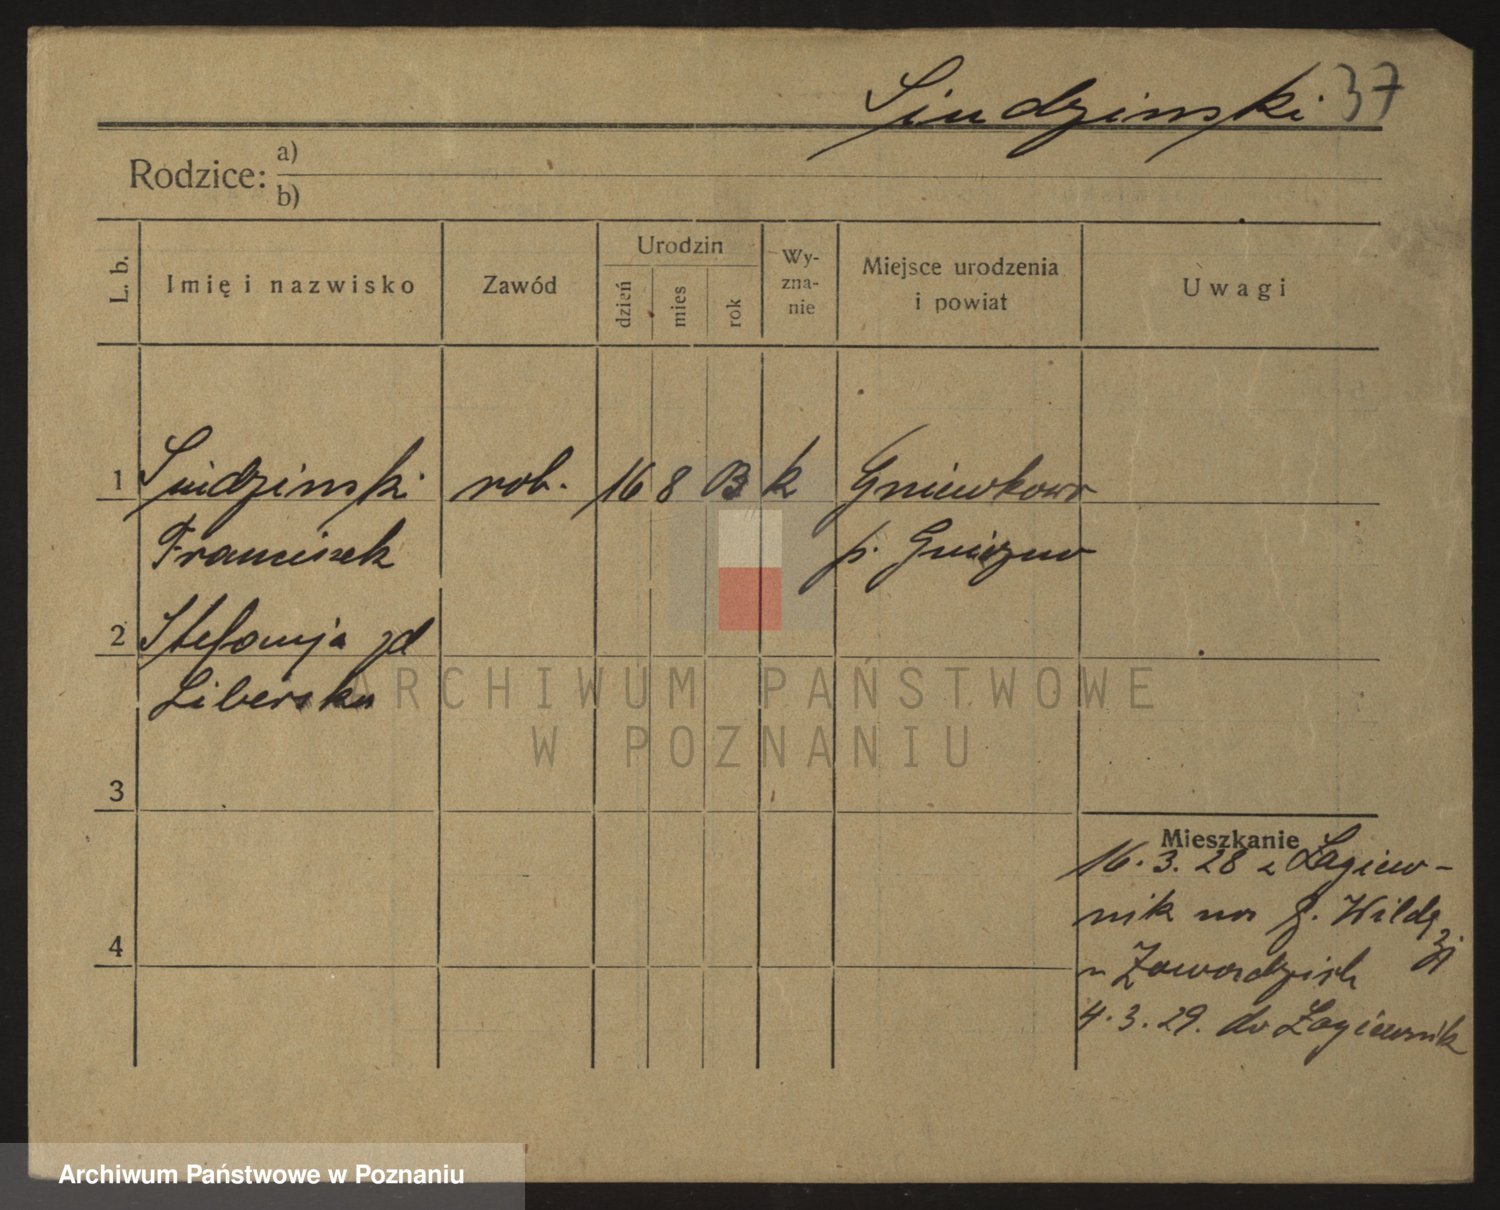 Siudzinski 37
Rodzice: a)
b)
L. b. Imię i nazwisko Zawód Urodzin dzień mies rok Wy-zna-nie Miejsce urodzenia i powiat Uwagi
1 Siudzinski rob. 16 8 k Gniewkowo
Franciszek p. Gniezno
2 Stefanja zd
Liberska
ARCHIWUM PAŃSTWOWE
W POZNANIU
3
Mieszkanie
16. 3. 28 z Łagiew-
nik na g. Wildę
4
u Zawadzich
4. 3. 29. do Łagiewnik
Archiwum Państwowe w Poznaniu